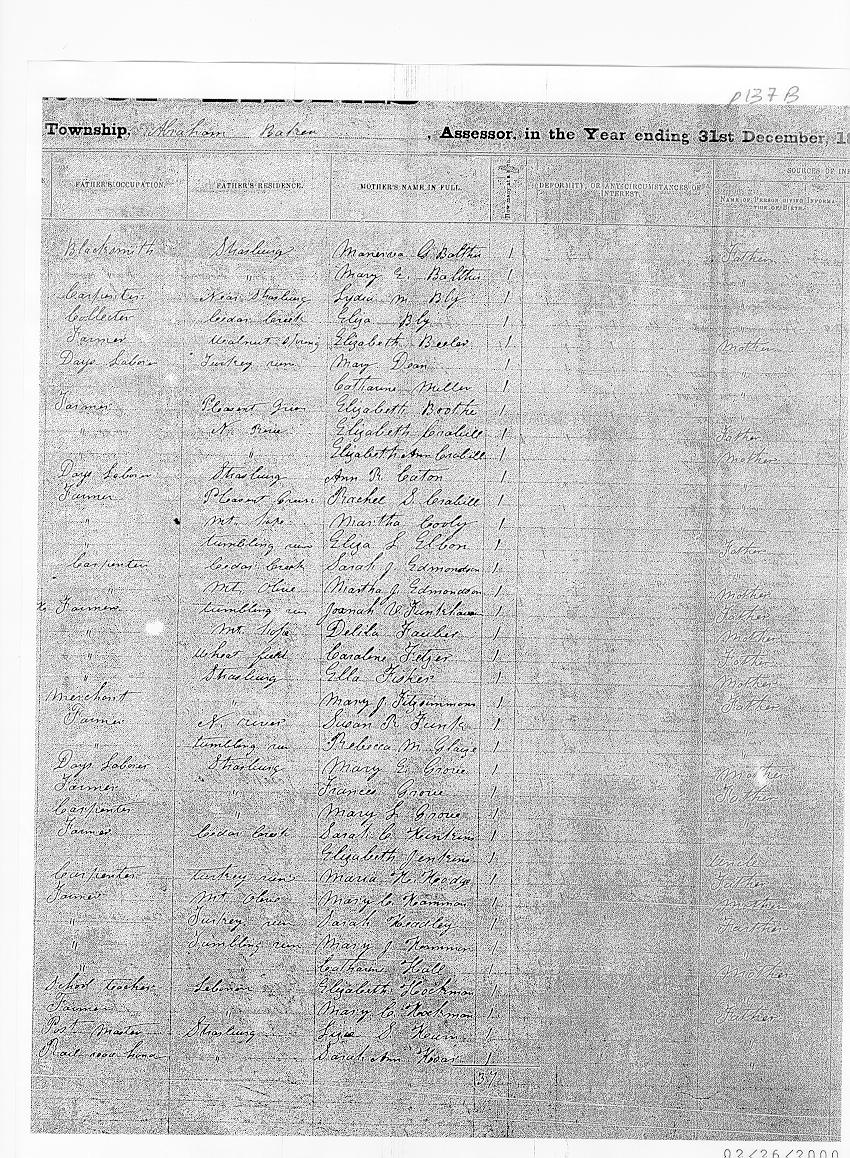 p 137 B
Township, Abraham Baker , Assessor, in the Year ending 31st December, 18
FATHER'S OCCUPATION. FATHER'S RESIDENCE. MOTHER'S NAME IN FULL. DEFORMITY, OR ANY CIRCUMSTANCES OF INTEREST. SOURCES OF IN
NAME OF PERSON GIVING INFORMATION OF BIRTH.
Blacksmith Strasburg G. Balthis 1 Father
" " Mary E. Balthis 1 "
Carpenter Near Strasburg Lydia M. Bly 1 "
Collector Cedar Creek Eliza Bly 1 "
Farmer Walnut Spring Elizabeth Beeler 1 Mother
Days Laborer Turkey run Mary Dean 1 "
Catharine Miller 1 "
Farmer Pleasant Elizabeth Boothe 1 "
" N. Elizabeth Crabill 1 Father
" " Elizabeth Ann Crabill 1 Mother
Days Laborer Strasburg Ann R. Eaton 1 "
Farmer Pleasant Rachel S. Crabill 1 "
" Mt. Martha Cooly 1 "
" tumbling run Eliza L. Ebbon 1 Father
Carpenter Cedar Creek Sarah J. Edmondson 1 "
" Mt. Olive Martha J. Edmondson 1 Mother
Farmer tumbling run Funkhouser 1 Father
" Mt. Delila Fauber 1 Mother
" Wheat field Caroline Fetzer 1 Father
" Strasburg Ella Fisher 1 Mother
Merchant " Mary J. Fitzsimmons 1 Father
Farmer N. river Susan R. Funk 1 "
" tumbling run Rebecca M. Glaze 1 "
Days Laborer Strasburg Mary E. Grove 1 Mother
Farmer " Frances Grove 1 Father
Carpenter " Mary L. Grove 1 "
Farmer Cedar Creek Sarah C. 1 "
Elizabeth Jenkins 1 Uncle
Carpenter turkey run Maria 1 Father
Farmer Mt Olive Mary C. Hamman 1 Mother
" Turkey run Sarah 1 Father
" Tumbling run Mary J. Hamman 1 "
" " Catharine Hall 1 Mother
School teacher Lebanon Elizabeth Hockman 1 "
Farmer " Mary C. Hockman 1 Father
Post Master Strasburg S. 1 "
Rail road hand " Sarah Ann 1 "
37
02/26/2000